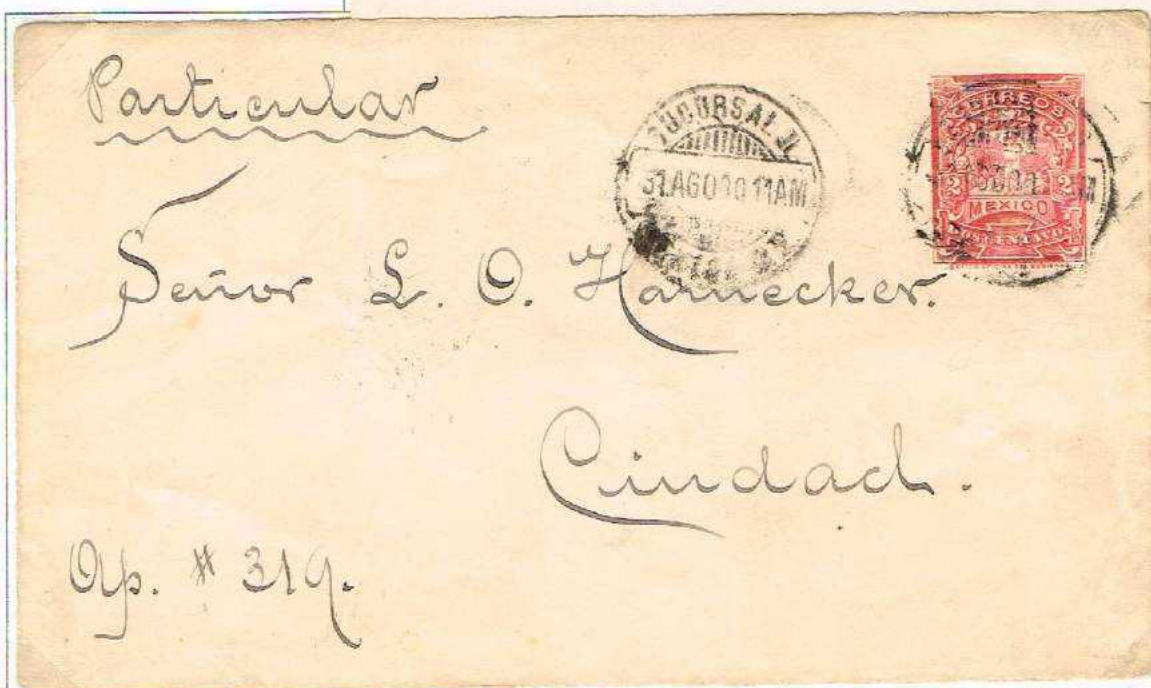 Particular
SUCURSAL
31.AGO 11AM
CORREOS
2 2
MEXICO
DOS CENTAVOS
Señor L. O. Harnecker.
Ciudad.
Ap. # 319.